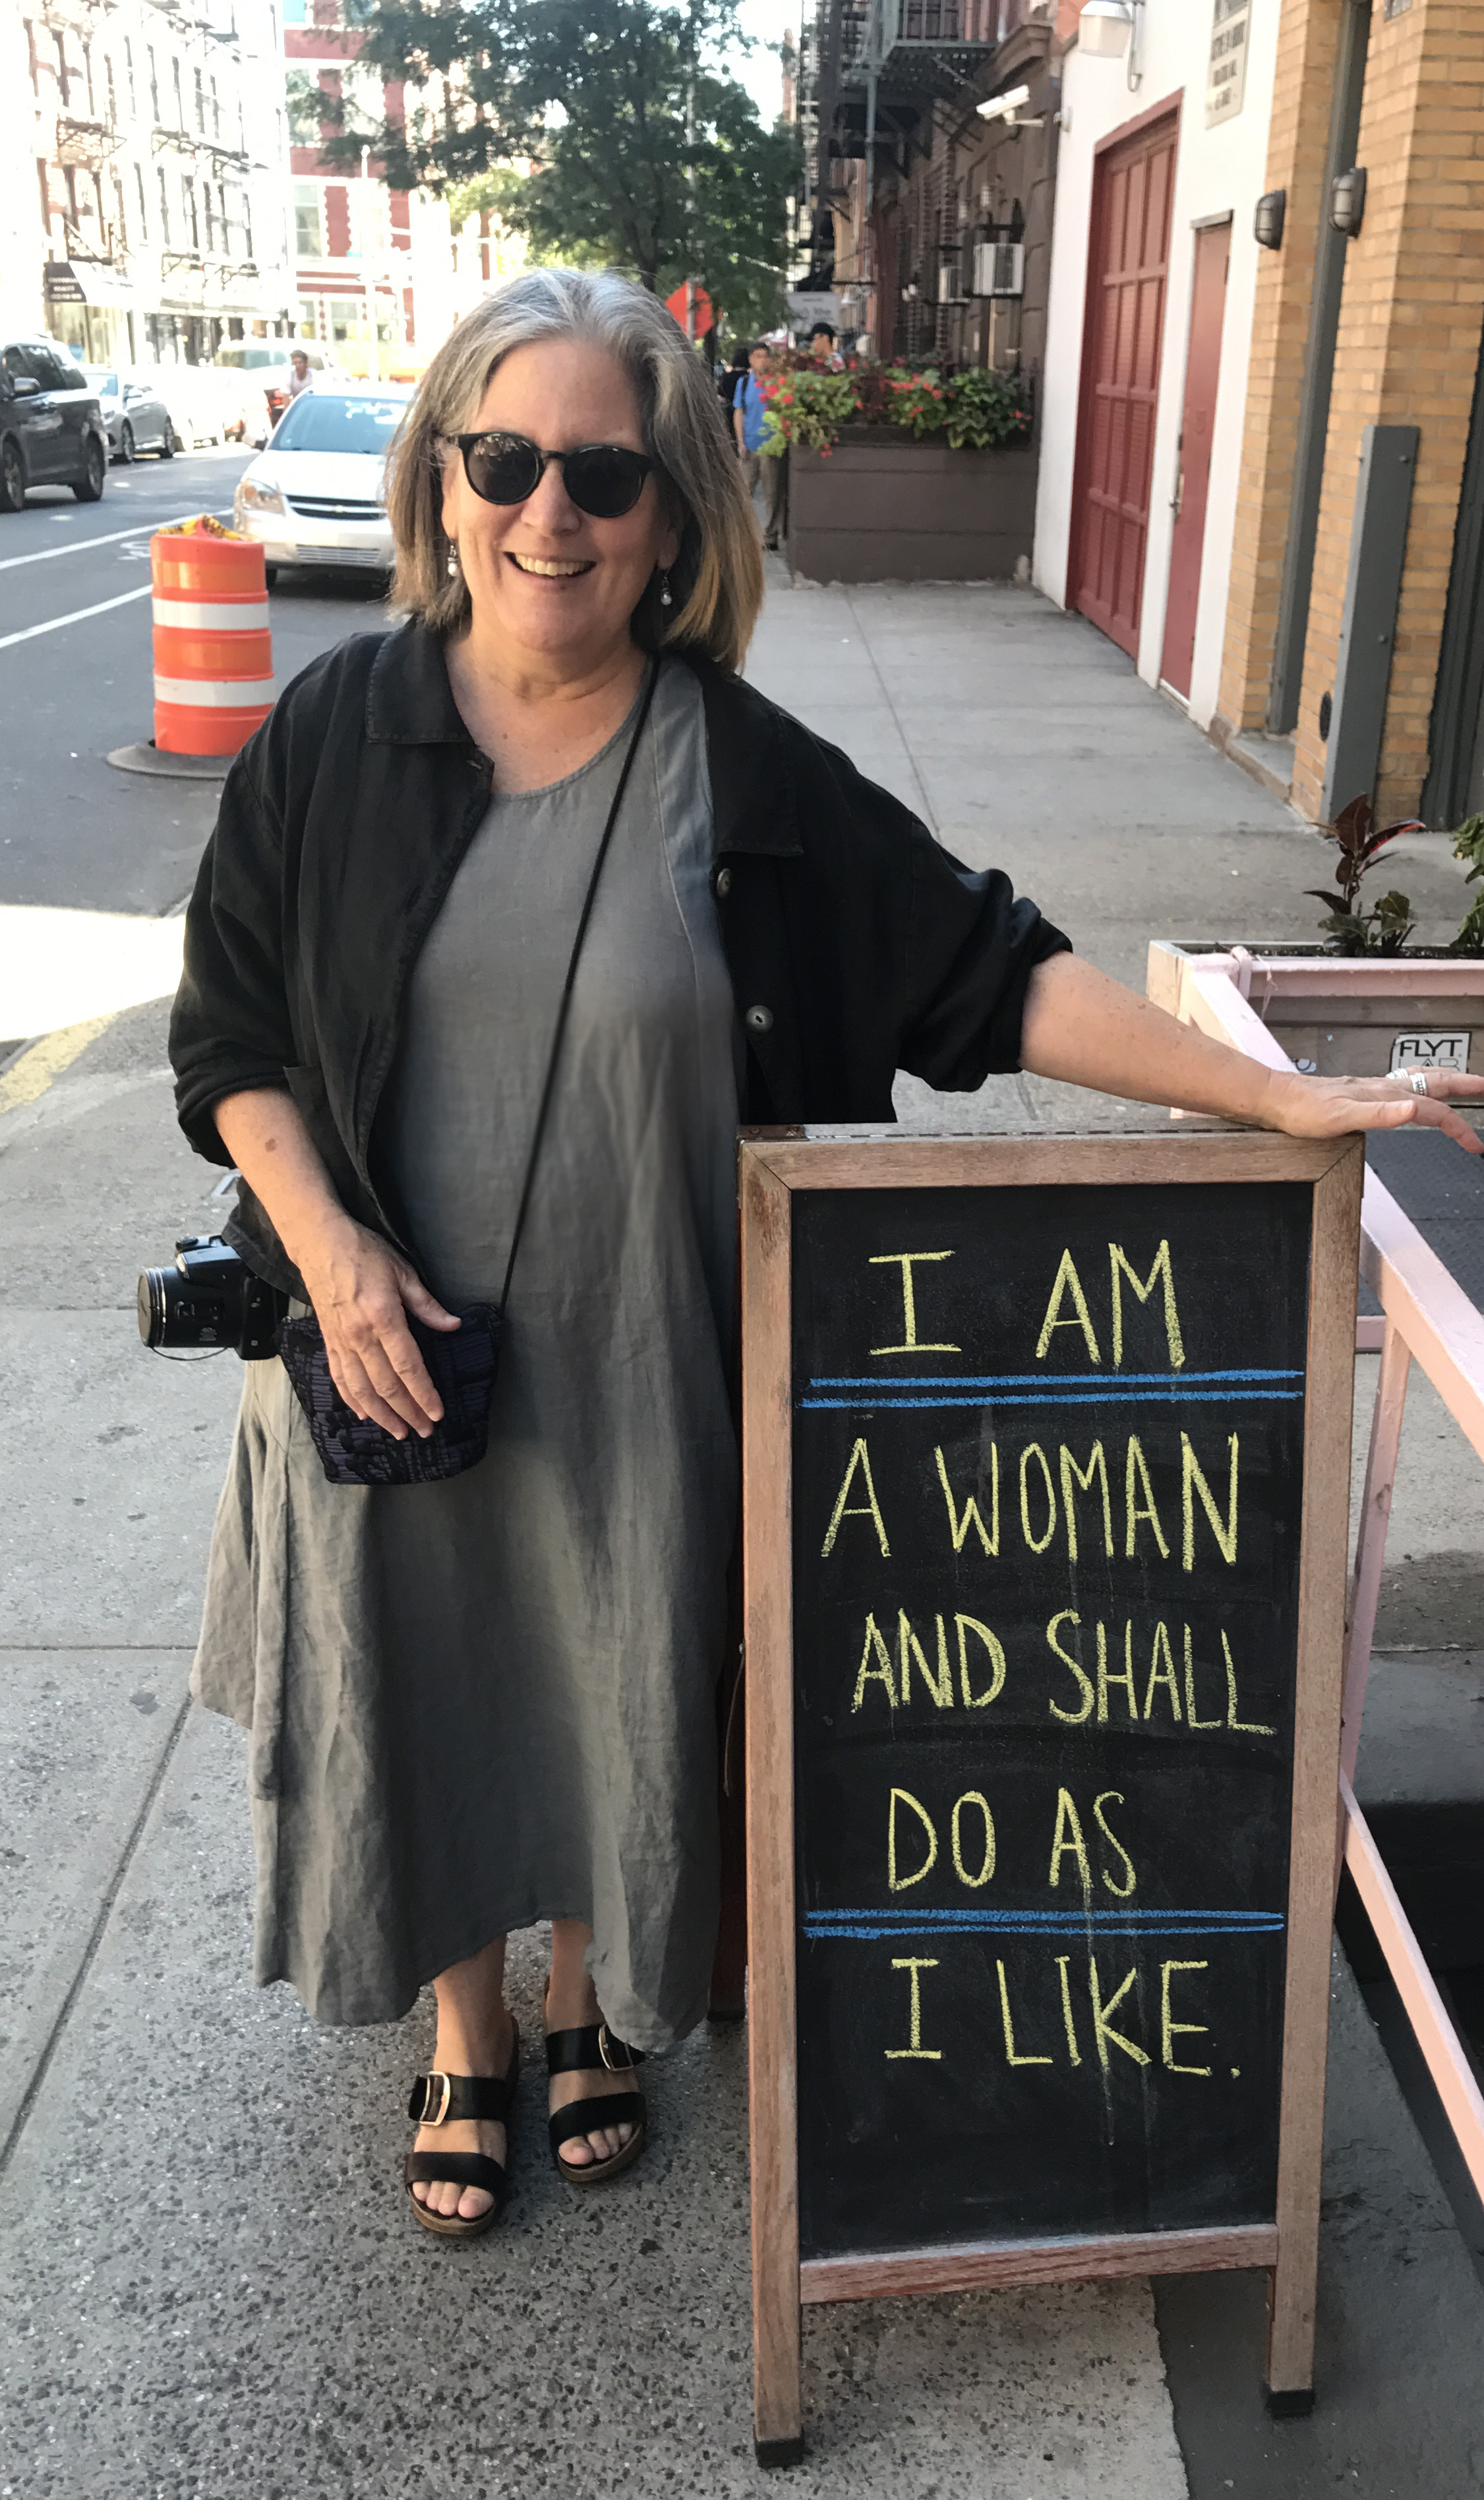 I AM
A WOMAN
AND SHALL
DO AS
I LIKE.
FLYT
LAB